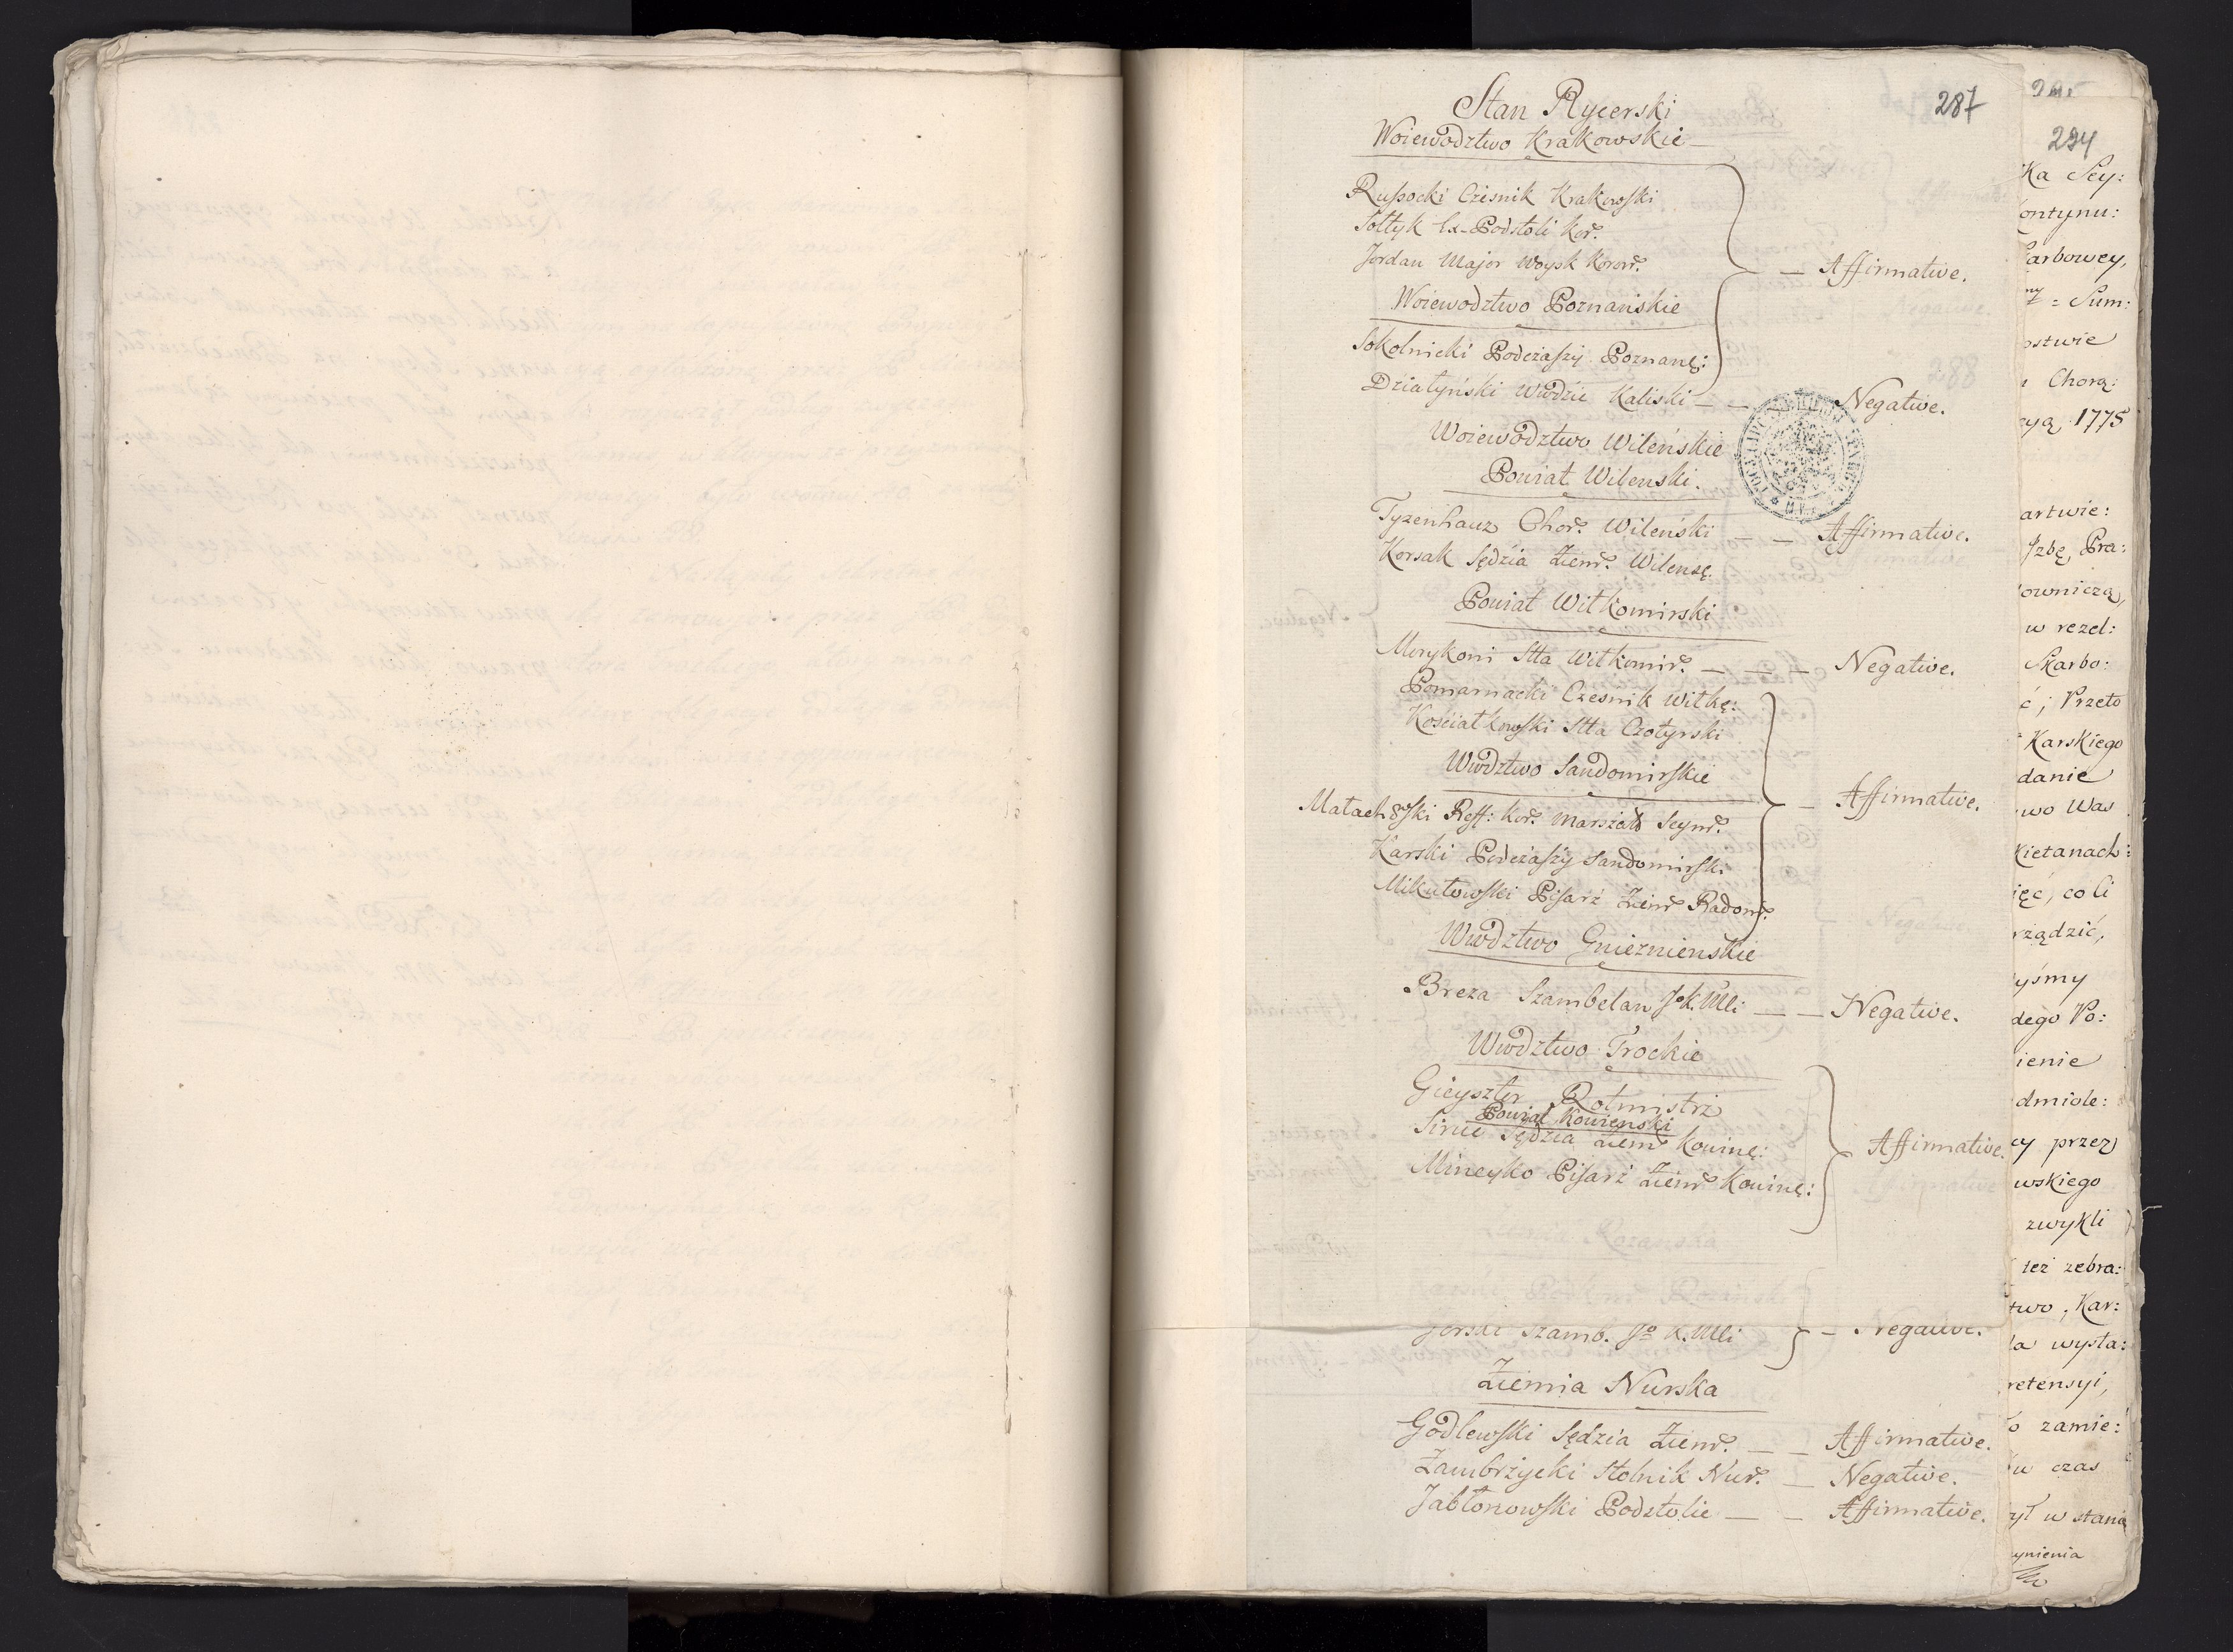 287
Stan Rycerski
Woiewodztwo Krakowskie
Russocki Czesnik Krakowski
Sołtyk Ex-Podstoli Kor.
Jordan Major Woysk Koron. — Affirmative.
Woiewodztwo Poznańskie
Sokolnicki Podczaszy Poznanę:
Działyński Wwdzic Kaliski — — Negative.
Woiewodztwo Wileńskie
Powiat Wilenski.
Tyzenhauz Chor. Wileński — — Affirmative.
Korsak Sędzia Ziem. Wilensę.
Powiat Wiłkomirski
Morykoni Stta Wiłkomir. — — — Negative.
Pomarnacki Czesnik Wiłkę:
Kościałkowski Stta Czotyrski
Wwdztwo Sandomirskie
Małachowski Reff: Kor. Marszałk Seym. — Affirmative.
Karski Podczaszy Sandomirski
Mikułowski Pisarz Ziem. Radom.
Wwdztwo Gnieznienskie
Breza Szambelan J. K. Mci — — Negative.
Wwdztwo Trockie
Gieysztor Rotmistrz
Powiat Kowienski
Siruc Sędzia Ziem. Kowinę: Affirmative.
Minceyko Pisarz Ziem. Kowinę:
Szamb. Jo K. Mci — Negative.
Ziemia Nurska
Godlewski Sędzia Ziem. — — Affirmative.
Zambrzycki Stolnik Nur. — Negative.
Jabłonowski Podstolic — — Affirmative.
294
Ka Sey:
ontynu:
arbowey,
Sum:
ostwie
Chorą:
cyą 1775
artwie:
Izbę, Pra:
owniczą,
w rezel:
Skarbo:
ć; Przeto
Karskiego
danie
wo Was
kietanach:
ięć, co li
rządzić,
yśmy
dego Po:
ienie
dmiole:
cy przez
wskiego
zwykli
też zebra:
two, Kar:
la wysta:
retensyi,
o zamie:
w czas
ył w stanie
ynienia